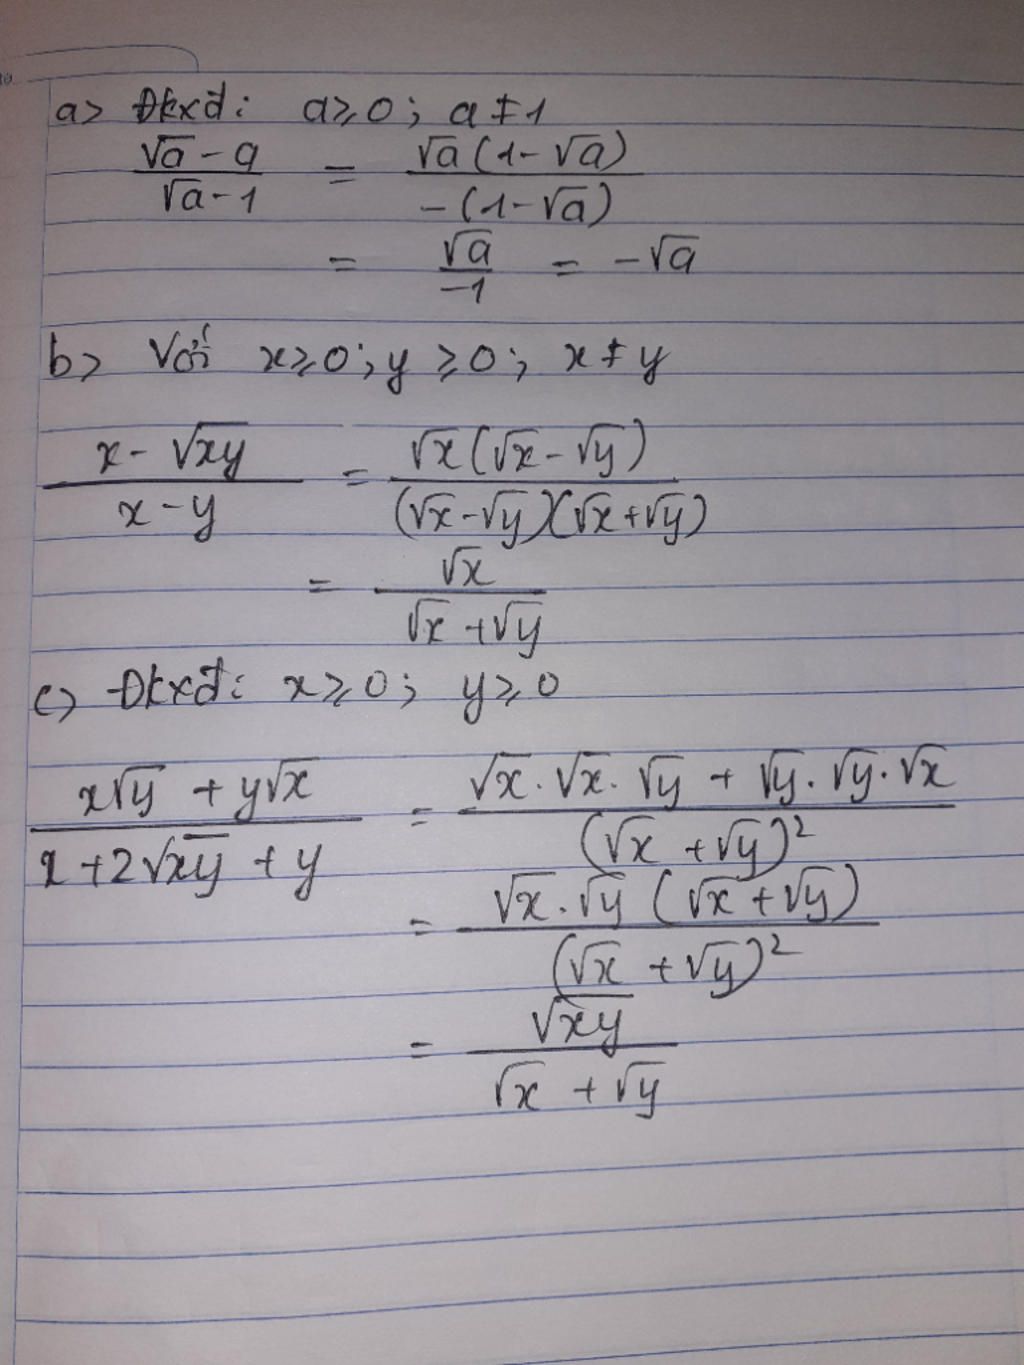 a> Đkxđ: a ≥ 0 ; a ≠ 1
(√a - a)/(√a - 1) = (√a (1 - √a))/(-(1 - √a))
= √a/-1 = -√a
b> Với x ≥ 0 ; y ≥ 0 ; x ≠ y
(x - √xy)/(x - y) = (√x (√x - √y))/((√x - √y)(√x + √y))
= √x/(√x + √y)
c> Đkxđ: x ≥ 0 ; y ≥ 0
(x√y + y√x)/(x + 2√xy + y) = (√x . √x . √y + √y . √y . √x)/(√x + √y)²
= (√x . √y (√x + √y))/(√x + √y)²
= √xy/(√x + √y)